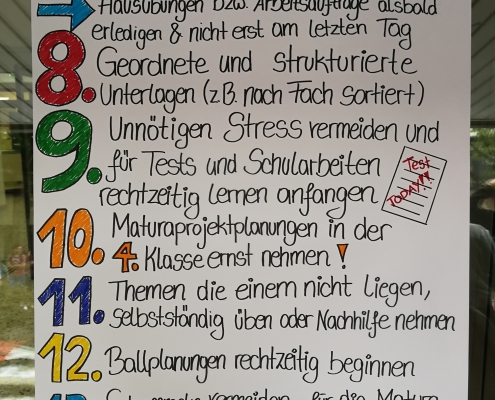 Hausübungen bzw. Arbeitsaufträge alsbald
erledigen & nicht erst am letzten Tag
8. Geordnete und strukturierte
Unterlagen (z.B. nach Fach sortiert)
9. Unnötigen Stress vermeiden und
für Tests und Schularbeiten
rechtzeitig lernen anfangen
Test
TODAY!!
10. Maturaprojektplanungen in der
4. Klasse ernst nehmen!
11. Themen die einem nicht liegen,
selbstständig üben oder Nachhilfe nehmen
12. Ballplanungen rechtzeitig beginnen
vermeiden für die Matura